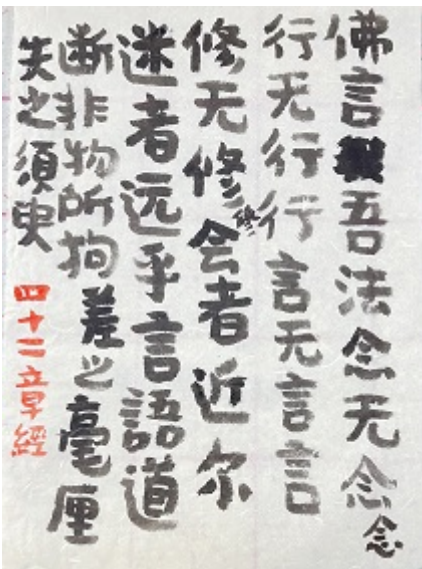 佛言吾法念无念念
行无行行言无言言
修无修修会者近尔
迷者远乎言語道
断非物所拘差之毫厘
失之須臾
四十二章經